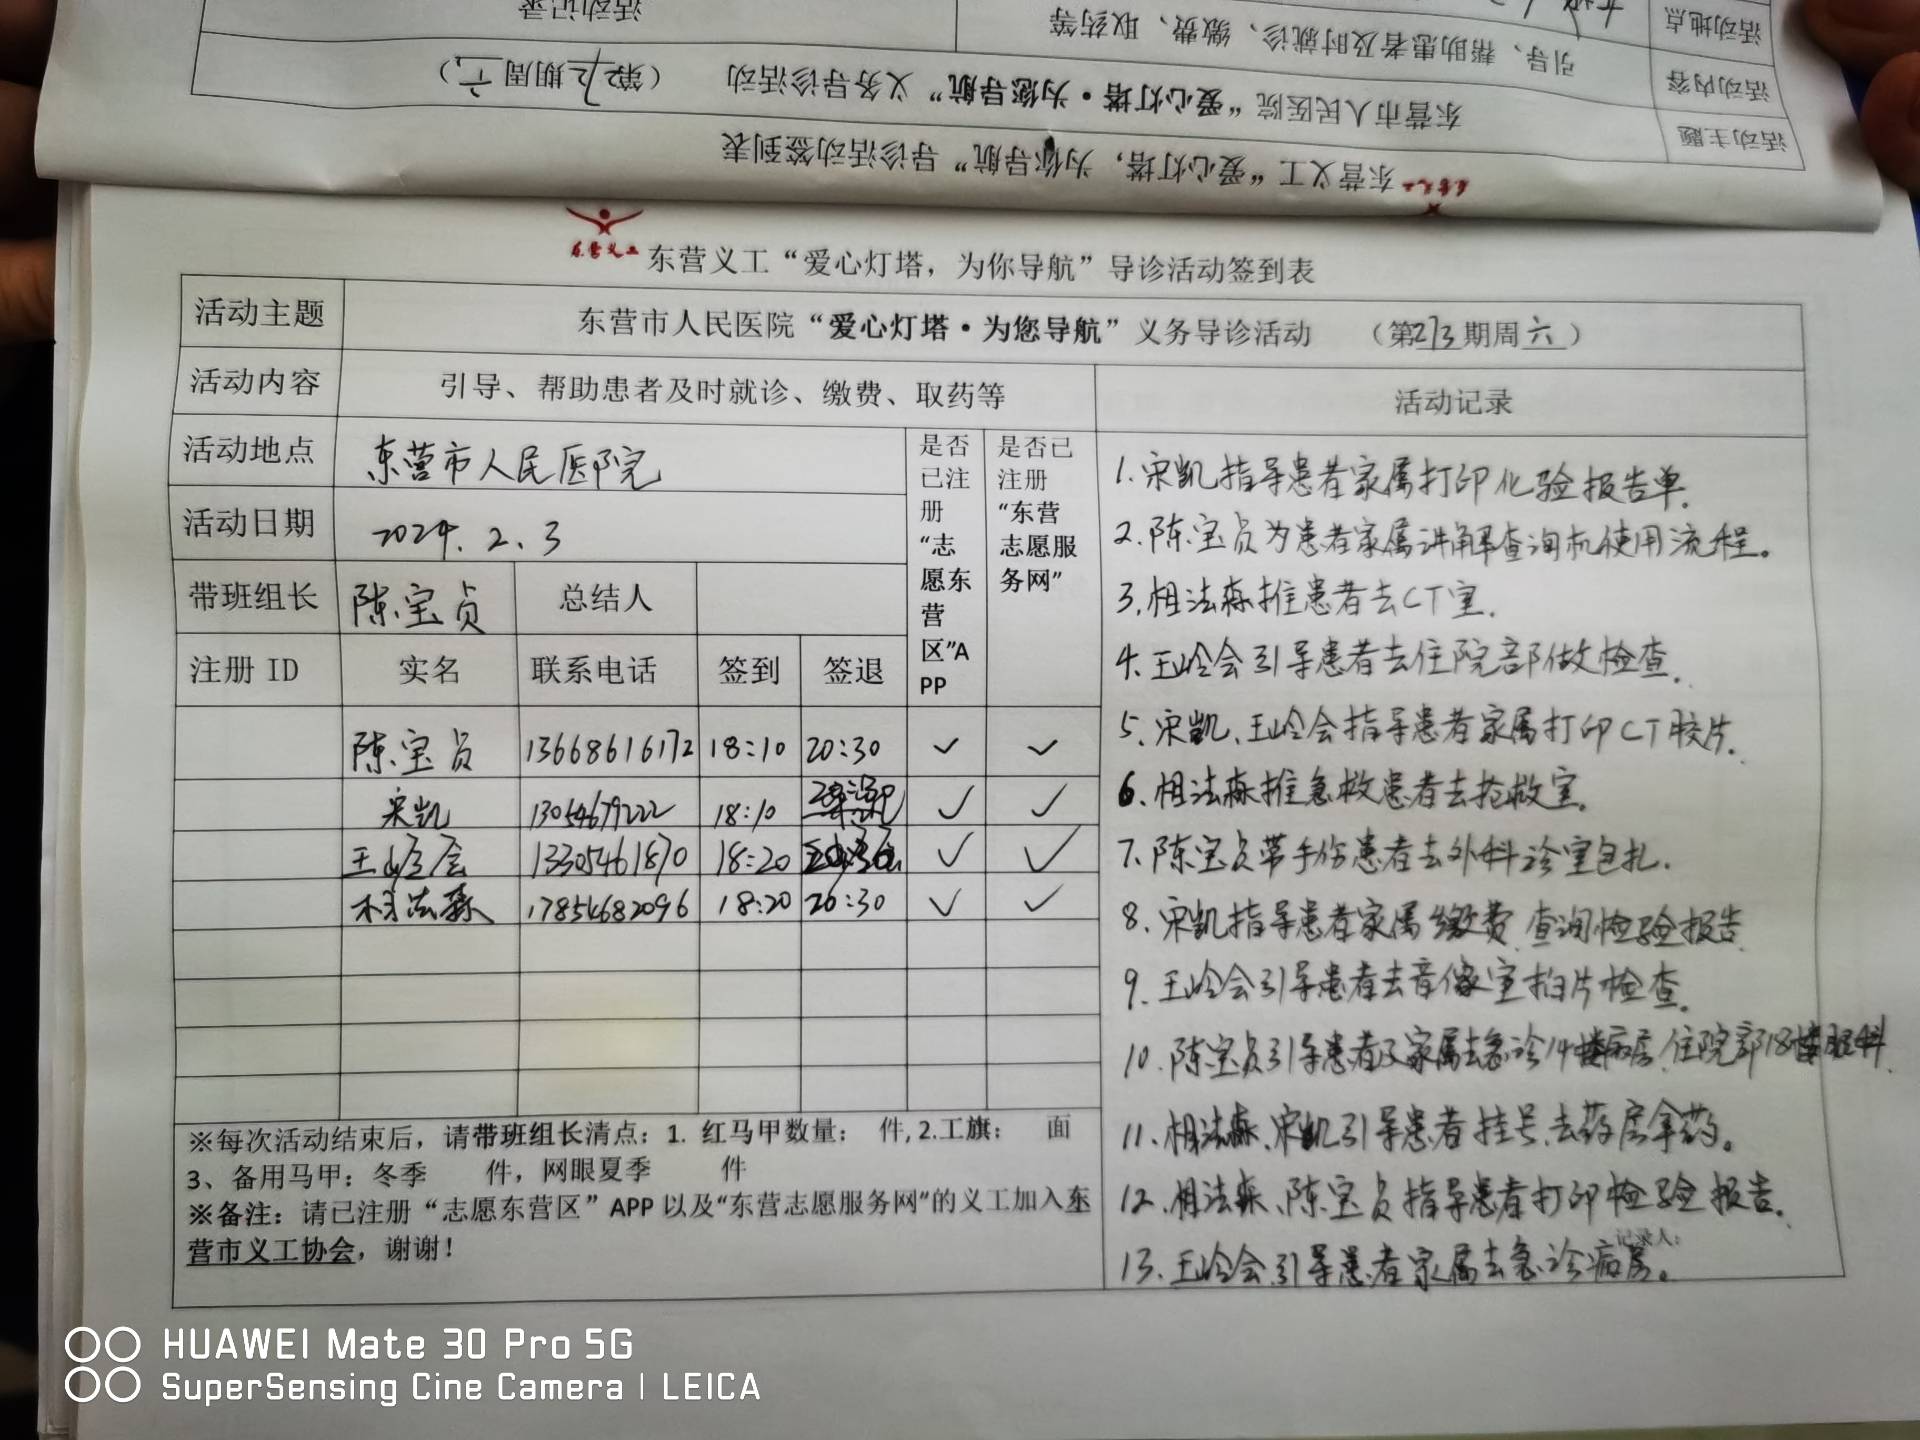 活动记录
活动地点
引导、帮助患者及时就诊、缴费、取药等
活动内容
东营市人民医院“爱心灯塔·为您导航”义务导诊活动 （第212期周六）
活动主题
东营义工“爱心灯塔，为你导航”导诊活动签到表
东营义工
东营义工“爱心灯塔，为你导航”导诊活动签到表
活动主题 东营市人民医院“爱心灯塔·为您导航”义务导诊活动 （第213期周六）
活动内容 引导、帮助患者及时就诊、缴费、取药等 活动记录
活动地点 东营市人民医院
活动日期 2024.2.3
带班组长 陈宝贞 总结人
注册 ID 实名 联系电话 签到 签退
是否
已注
册
“志
愿东
营
区”A
PP
是否已
注册
“东营
志愿服
务网”
陈宝贞 13668616172 18:10 20:30 ✓ ✓
宋凯 13054679222 18:10 ✓ ✓
王岭会 13305461870 18:20 ✓ ✓
相法森 17854682096 18:20 20:30 ✓ ✓
1.宋凯指导患者家属打印化验报告单.
2.陈宝贞为患者家属讲解查询机使用流程。
3.相法森推患者去CT室.
4.王岭会引导患者去住院部做检查.
5.宋凯、王岭会指导患者家属打印CT胶片.
6.相法森推急救患者去抢救室.
7.陈宝贞带手伤患者去外科诊室包扎.
8.宋凯指导患者家属缴费.查询检验报告
9.王岭会引导患者去音像室拍片检查.
10.陈宝贞引导患者及家属去急诊14楼病房.住院部18楼眼科.
11.相法森、宋凯引导患者挂号.去药房拿药。
12.相法森、陈宝贞指导患者打印检验报告.
记录人：
13.王岭会引导患者家属去急诊病房。
※每次活动结束后，请带班组长清点：1. 红马甲数量： 件, 2.工旗： 面
3、备用马甲：冬季 件，网眼夏季 件
※备注：请已注册“志愿东营区”APP 以及“东营志愿服务网”的义工加入东
营市义工协会，谢谢！
HUAWEI Mate 30 Pro 5G
SuperSensing Cine Camera | LEICA